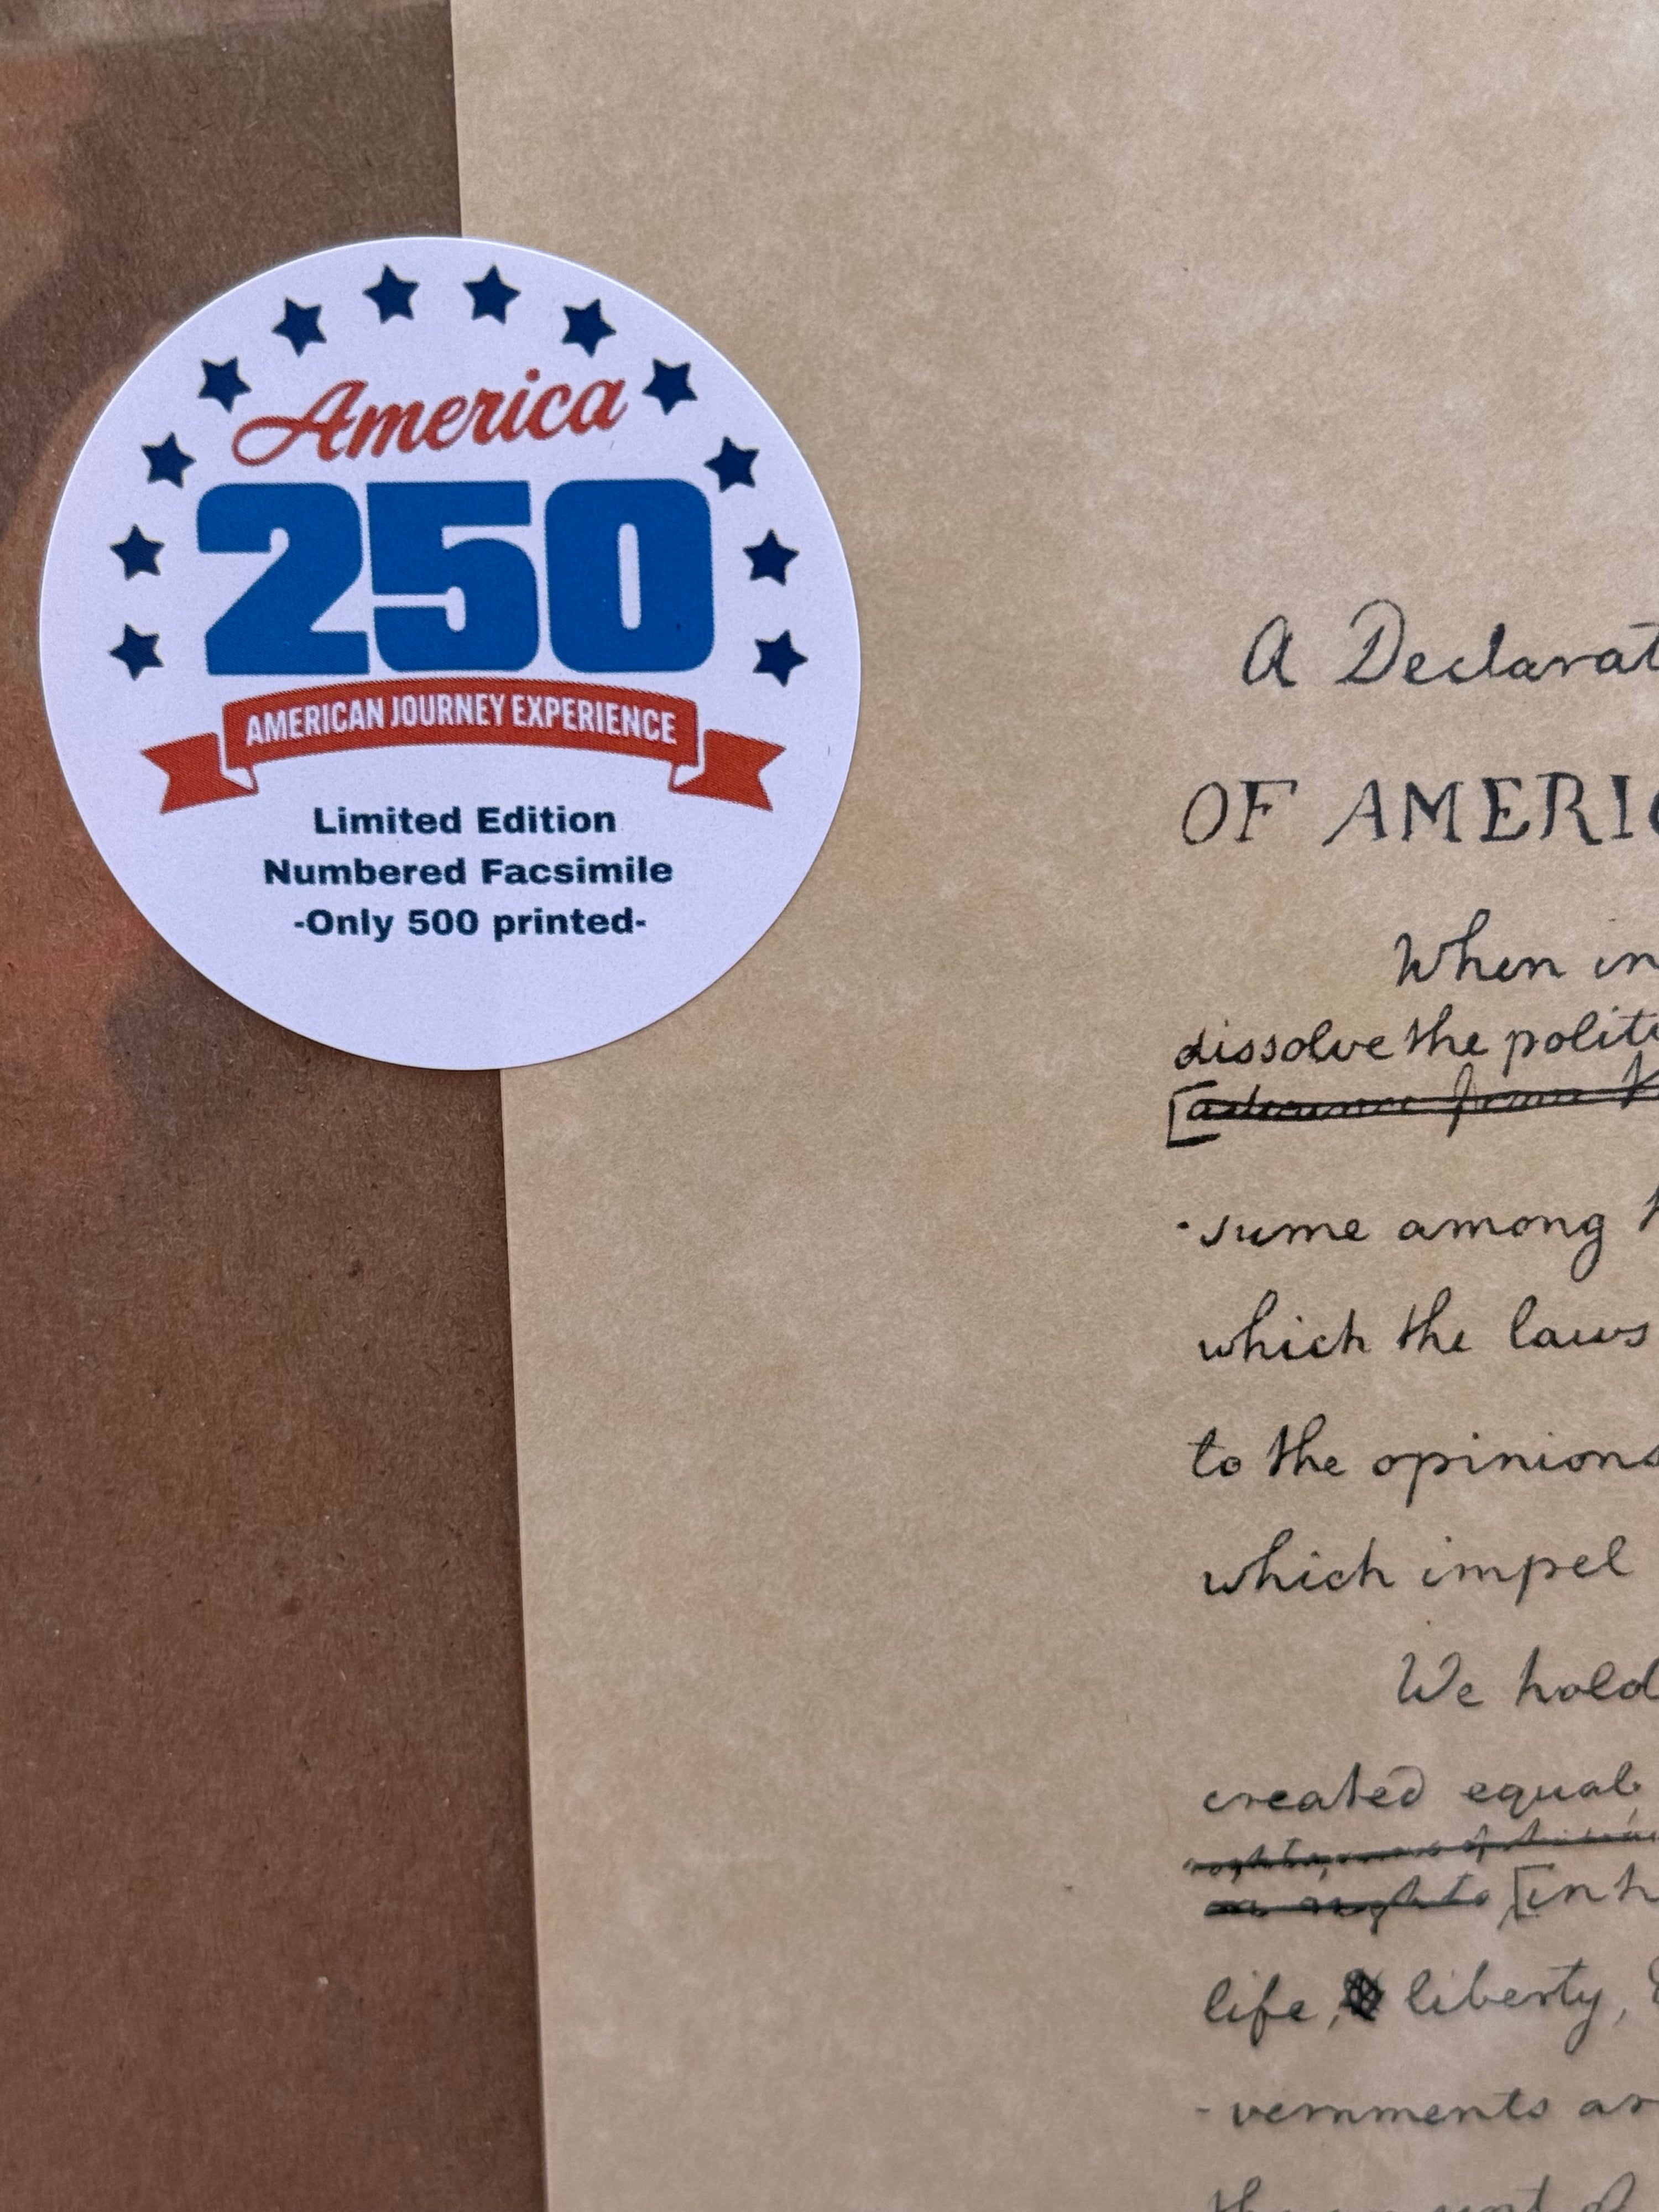 America
250
AMERICAN JOURNEY EXPERIENCE
Limited Edition
Numbered Facsimile
-Only 500 printed-
A Declarat
OF AMERIC
When in
dissolve the polit
[
-sume among
which the laws
to the opinions
which impel
We hold
created equal,
[inh
life, liberty,
-vernments ar